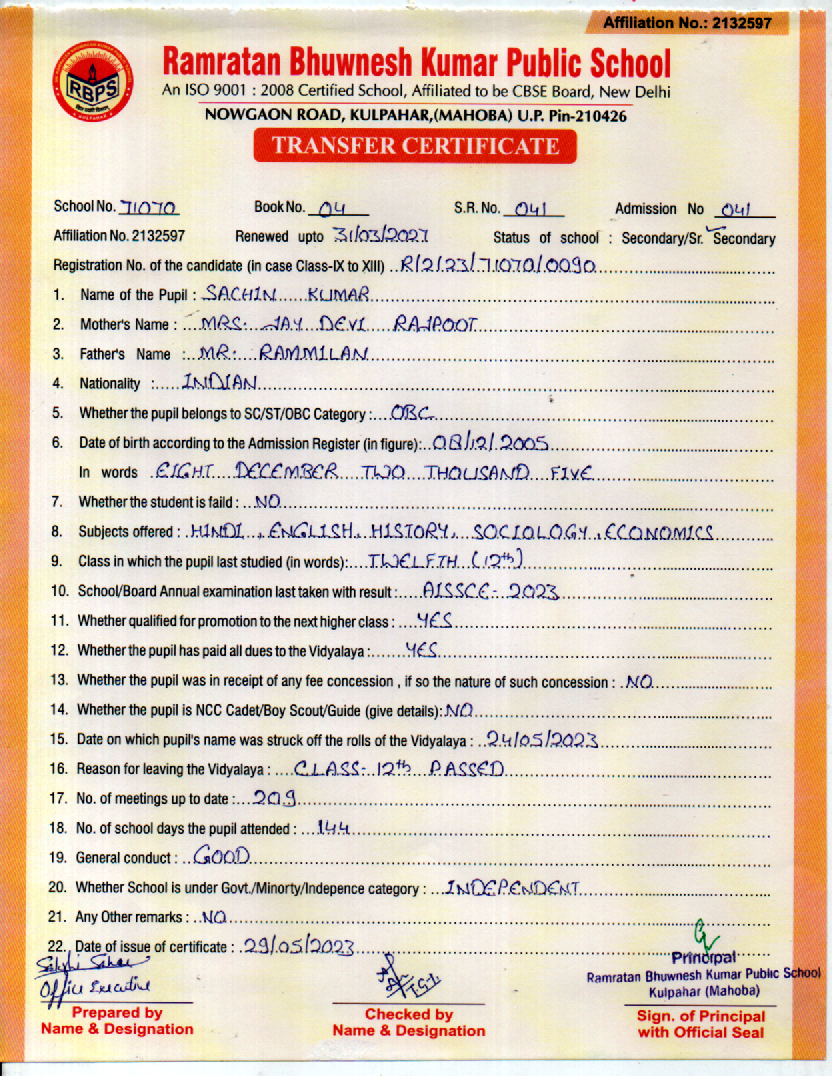 Affiliation No.: 2132597
RBPS
Ramratan Bhuwnesh Kumar Public School
An ISO 9001 : 2008 Certified School, Affiliated to be CBSE Board, New Delhi
NOWGAON ROAD, KULPAHAR,(MAHOBA) U.P. Pin-210426
TRANSFER CERTIFICATE
School No. 71070 Book No. 04 S.R. No. 041 Admission No 041
Affiliation No. 2132597 Renewed upto 31/03/2027 Status of school : Secondary/Sr. Secondary
Registration No. of the candidate (in case Class-IX to XIII) R/2/23/71070/0090
1. Name of the Pupil : SACHIN KUMAR
2. Mother's Name : MRS. JAY DEVI RAJPOOT
3. Father's Name : MR. RAMMILAN
4. Nationality : INDIAN
5. Whether the pupil belongs to SC/ST/OBC Category : OBC
6. Date of birth according to the Admission Register (in figure): 08/12/2005
In words EIGHT DECEMBER TWO THOUSAND FIVE
7. Whether the student is faild : NO
8. Subjects offered : HINDI, ENGLISH, HISTORY, SOCIOLOGY, ECONOMICS
9. Class in which the pupil last studied (in words): TWELFTH (12th)
10. School/Board Annual examination last taken with result : AISSCE- 2023
11. Whether qualified for promotion to the next higher class : YES
12. Whether the pupil has paid all dues to the Vidyalaya : YES
13. Whether the pupil was in receipt of any fee concession , if so the nature of such concession : NO
14. Whether the pupil is NCC Cadet/Boy Scout/Guide (give details): NO
15. Date on which pupil's name was struck off the rolls of the Vidyalaya : 24/05/2023
16. Reason for leaving the Vidyalaya : CLASS- 12th PASSED
17. No. of meetings up to date : 209
18. No. of school days the pupil attended : 144
19. General conduct : GOOD
20. Whether School is under Govt./Minorty/Indepence category : INDEPENDENT
21. Any Other remarks : NO
22. Date of issue of certificate : 29/05/2023
Office Executive
Principal
Ramratan Bhuwnesh Kumar Public School
Kulpahar (Mahoba)
Prepared by
Name & Designation
Checked by
Name & Designation
Sign. of Principal
with Official Seal